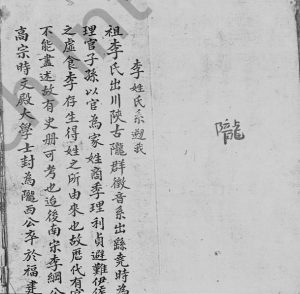 隴
李姓氏系避义
祖李氏出川陝古隴群徵音系出繇堯時為
理官子孫以官為家姓商季理利貞避難伊侯
之虛食李存生得姓之所由來也故歷代有官
不能盡述故有史册可考也迨後南宋李綱公
高宗時文殿大學士封為隴西公卒於福建